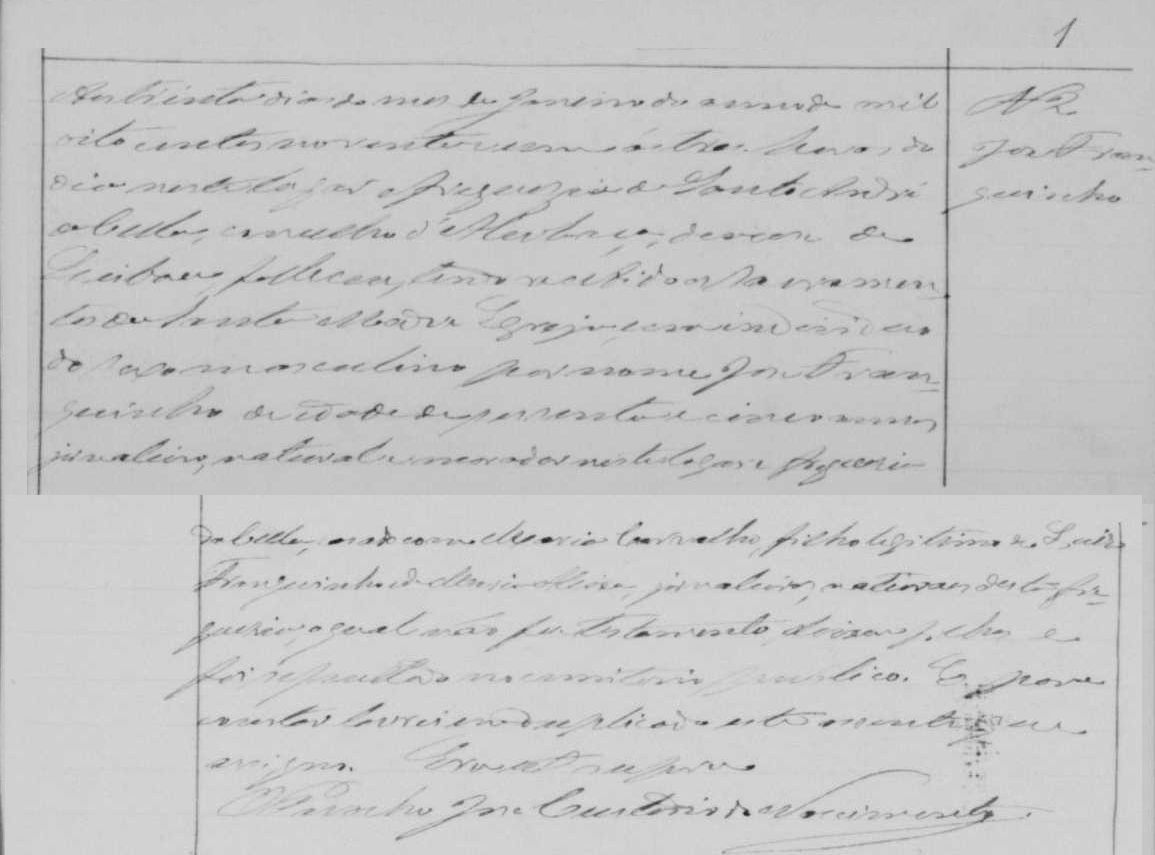 1
Nº 2
José Fran=
guinho
Aos trinta dias do mes de Janeiro do anno de mil
oito centos noventa e um ás tres horas do
dia neste logar e freguezia de Santo André
concelho d'
falleceu, tendo recebido os Sacramen=
tos da Santa Madre Egreja, um individuo
do sexo masculino por nome José Fran=
guinho de edade de sessenta e cinco annos
jornaleiro, natural e morador neste logar e freguezia
casado com Maria Carvalho, filho legitimo de Luiz
Franguinho e de Maria jornaleiros, naturaes desta fre=
guezia, o qual não fez testamento, deixou filhos e
foi sepultado no cemiterio publico. E para
constar lavrei em duplicado este assento que
assigno. Era ut supra
O Parocho José Custodio do Nascimento